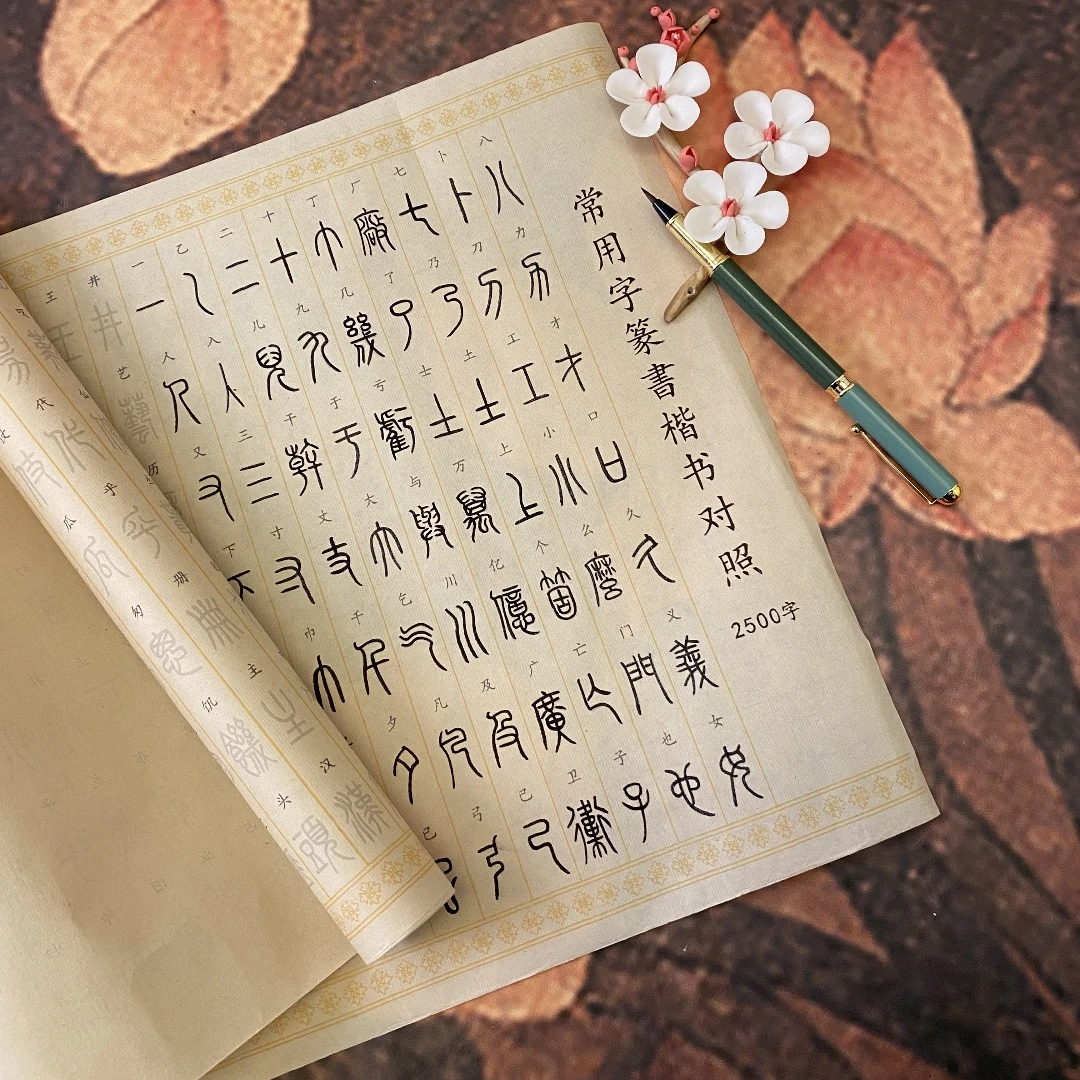 常用字篆書楷书对照
2500字
一 乙 二 十 丁 厂 七 卜 八
人 入 儿 九 几 了 乃 刀 力
又 三 干 于 亏 士 土 工 才
下 寸 丈 大 与 万 上 小 口
巾 千 乞 川 亿 个 么 久
夕 凡 及 广 亡 门 义
弓 己 卫 子 也 女
王 井
艺
代
历
瓜 乎
匆 册
饥 主
头 汉